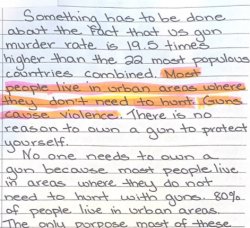 Something has to be done
about the fact that us gun
murder rate is 19.5 times
higher than the 22 most populous
countries combined. Most
people live in urban areas where
they don't need to hunt. Guns
cause violence. There is no
reason to own a gun to protect
yourself.
No one needs to own a
gun because most people live
in areas where they do not
need to hunt with guns. 80%
of people live in urban areas.
The only purpose most of these